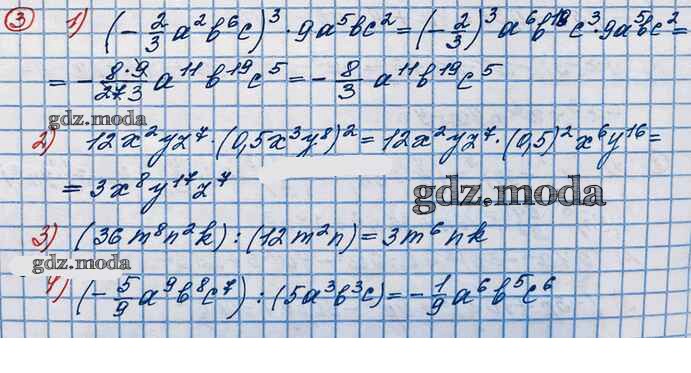 3 1) (-2/3 a²b⁶c)³ · 9a⁵bc² = (-2/3)³ a⁶b¹⁸c³ · 9a⁵bc² =
= - 8·9/27·3 a¹¹b¹⁹c⁵ = - 8/3 a¹¹b¹⁹c⁵
gdz.moda
2) 12x²yz⁷ · (0,5x³y⁸)² = 12x²yz⁷ · (0,5)² x⁶y¹⁶ =
= 3x⁸y¹⁷z⁷
gdz.moda
3) (36m⁸n²k) : (12m²n) = 3m⁶nk
gdz.moda
4) (-5/9 a⁹b⁸c⁷) : (5a³b³c) = - 1/9 a⁶b⁵c⁶